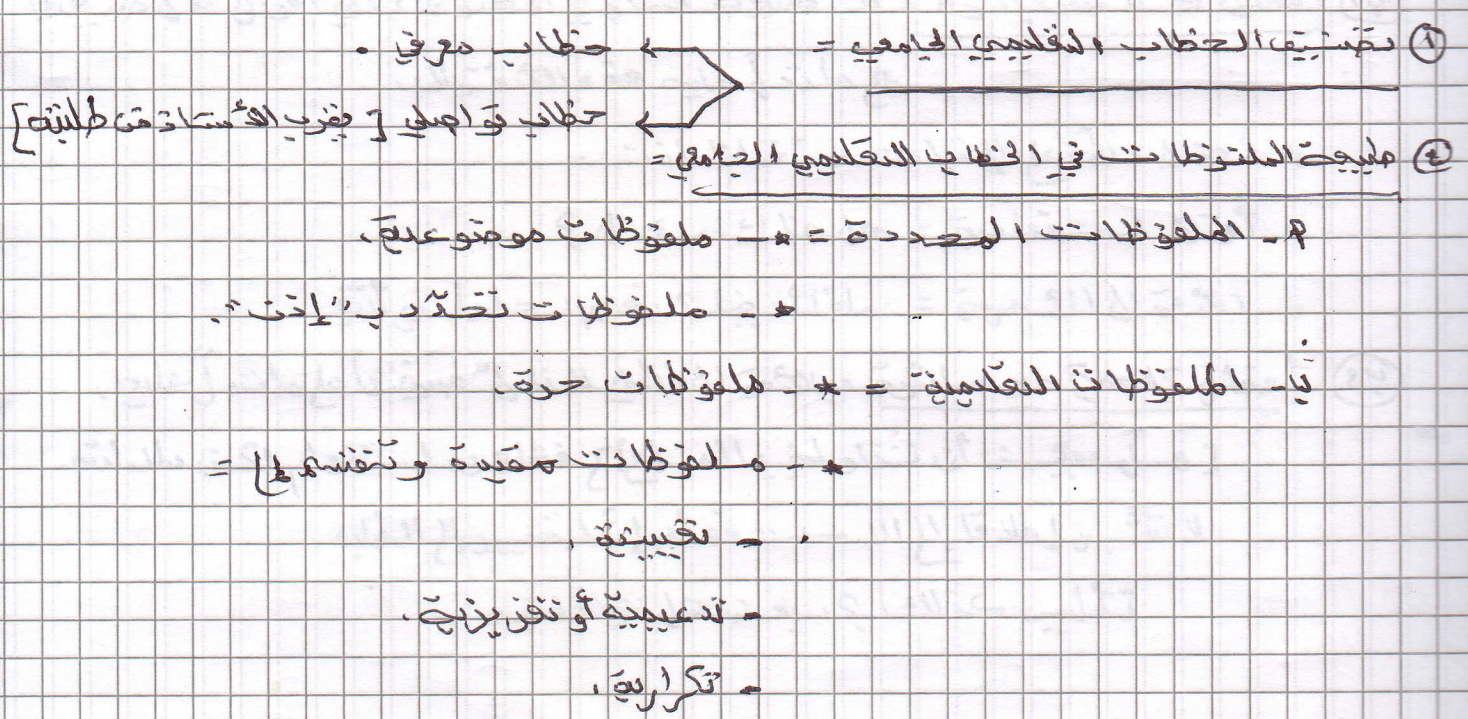 ① تصنيف الخطاب التعليمي الجامعي = ← خطاب معرفي .
← خطاب تواصلي [يقرب الأستاذ من طلبته]
② طبيعة الملفوظات في الخطاب التعليمي الجامعي =
أ- الملفوظات المحددة = *- ملفوظات موضوعية.
*- ملفوظات تحدد بـ "إذن".
ب- الملفوظات التعليمية = *- ملفوظات حرة.
*- ملفوظات مقيدة وتنقسم إلى =
- تقييمية .
- تدعيمية أو تعزيزية .
- تكرارية .